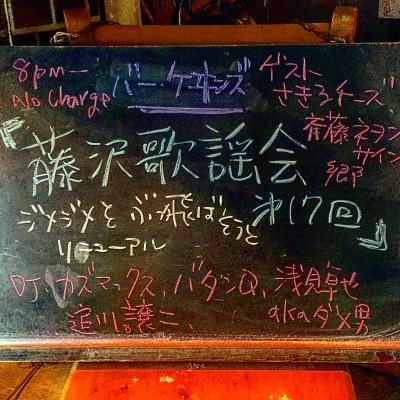 8pm—
No Charge
バー・ケヰンズ
ゲスト
さきろチーズ
斎藤ネヲン
サイン
郷
『藤沢歌謡会
第17回』
ジメジメとぶっ飛ばそうと
リニューアル
DJ カズマックス、バダンQ、浅見卓也
追川譲二、
水のダメ男